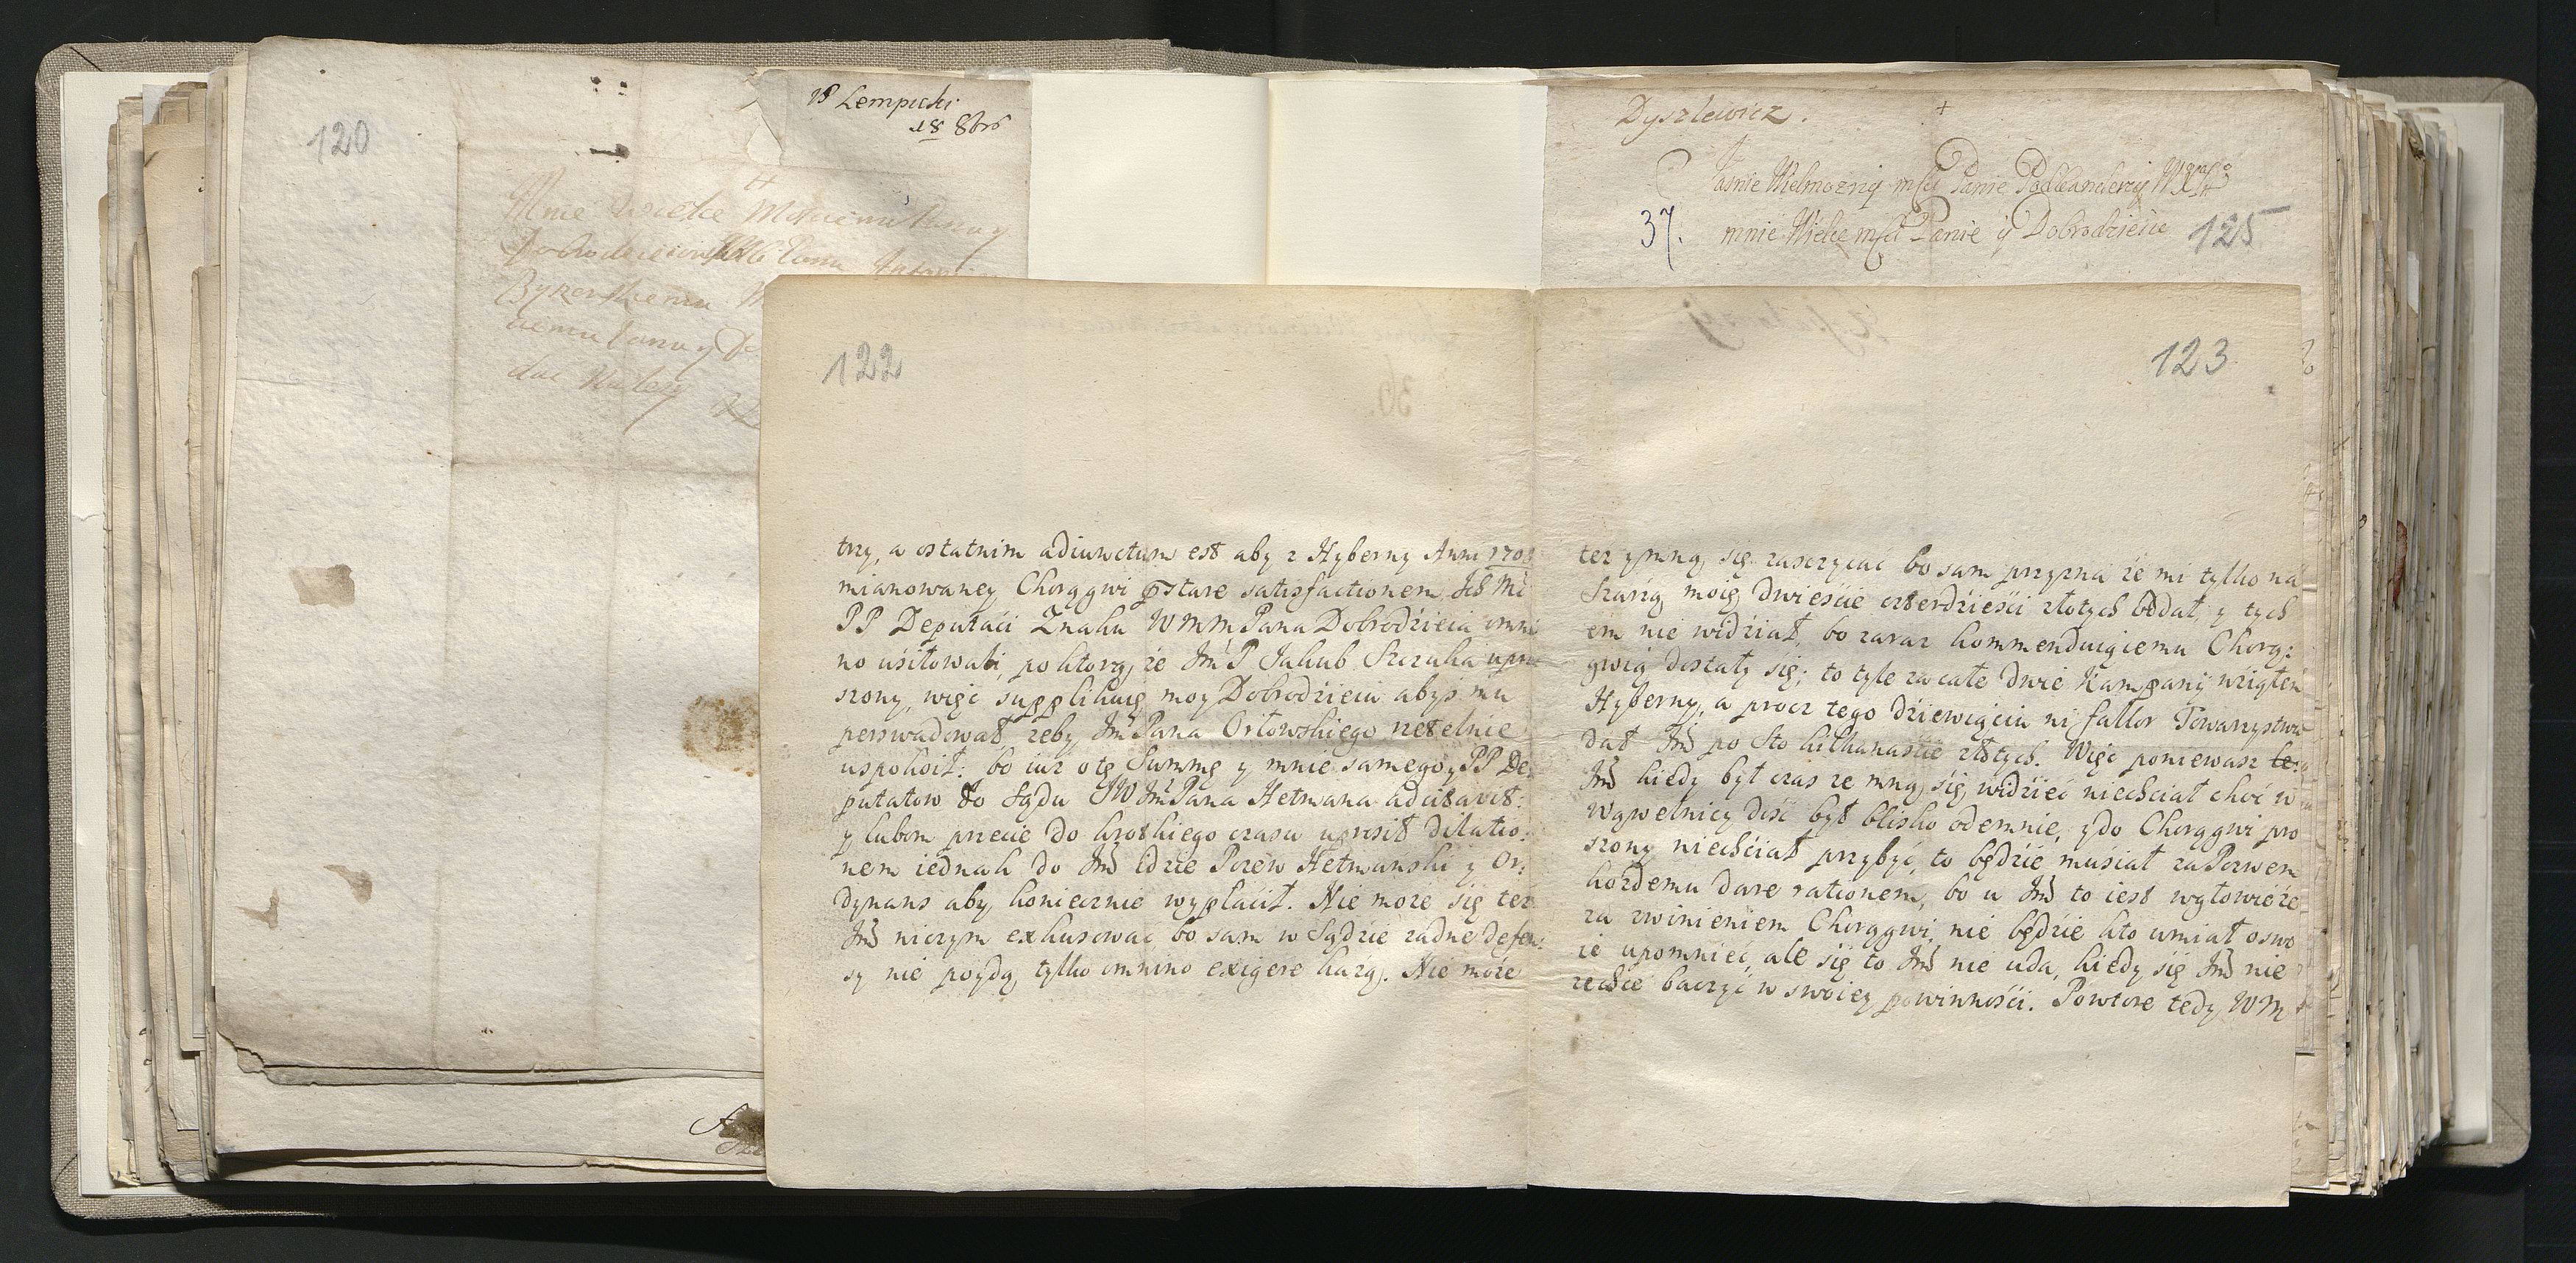 120
Lempicki
18 8bris
Mnie wielce Mskiemu Panu y
Byzerskiemu
dać Należy
Dyszlewicz.
Jasnie Wielmozny mści Panie Podkanclerzy
37.
mnie Wielce mści Panie y Dobrodzieiu
125
122
trzy, a ostatnim adiunctum est aby z Hyberny Anni 1703
mianowaney Chorągwi pstare satisfactionem Ich Mć
PP Deputaci Znaku WMM Pana Dobrodzieia omni
no usiłowali, po ktorą, że Jmć P Jakub Szczuka upro
szony, więc supplikuię moy Dobrodzieiu abyś mu
perswadował zeby Jmć Pana Orłowskiego rzetelnie
uspokoił: bo iuz o tę Summę y mnie samego y PP De
putatow do Sądu JW Jmć Pana Hetmana adcitavit:
y lubom przecie do krotkiego czasu uprosił dilatio:
nem iednak do Jmć idzie Pozew Hetmanski y Or:
dynans aby koniecznie wypłacił. Nie moze się tez
Jmć niczym exkusować bo sam w Sądzie zadne defen:
sy nie poydą tylko omnino exigere kazą. Nie moze
123
tez y mną się zaszczycac bo sam przyzna że mi tylko na
Szarzą moię dwieście czterdzieści złotych oddał, y tych
em nie widział, bo zaraz kommenduiącemu Chorą:
gwią dostały się; to tyle za całe dwie Kampanij wziąłem
Hyberny, a procz tego dziewiąciu ni fallor Towarzystwa
dał Jmć po sto kilkanaście złotych. Więc poniewasz
Jmć kiedy był czas ze mną się widzieć niechciał choć w
Wąwelnicy dość był blisko odemnie, y do Chorągwi pro
szony niechciał przybyć, to będzie musiał za Pozwem
kozdemu dare rationem, bo u Jmć to iest w głowie że
za zwinieniem Chorągwi, nie będzie kto umiał o swo
ie upomnieć, ale się to Jmć nie uda, kiedy się Jmć nie
zechce baczyć w swoiey powinności. Powtore tedy WM